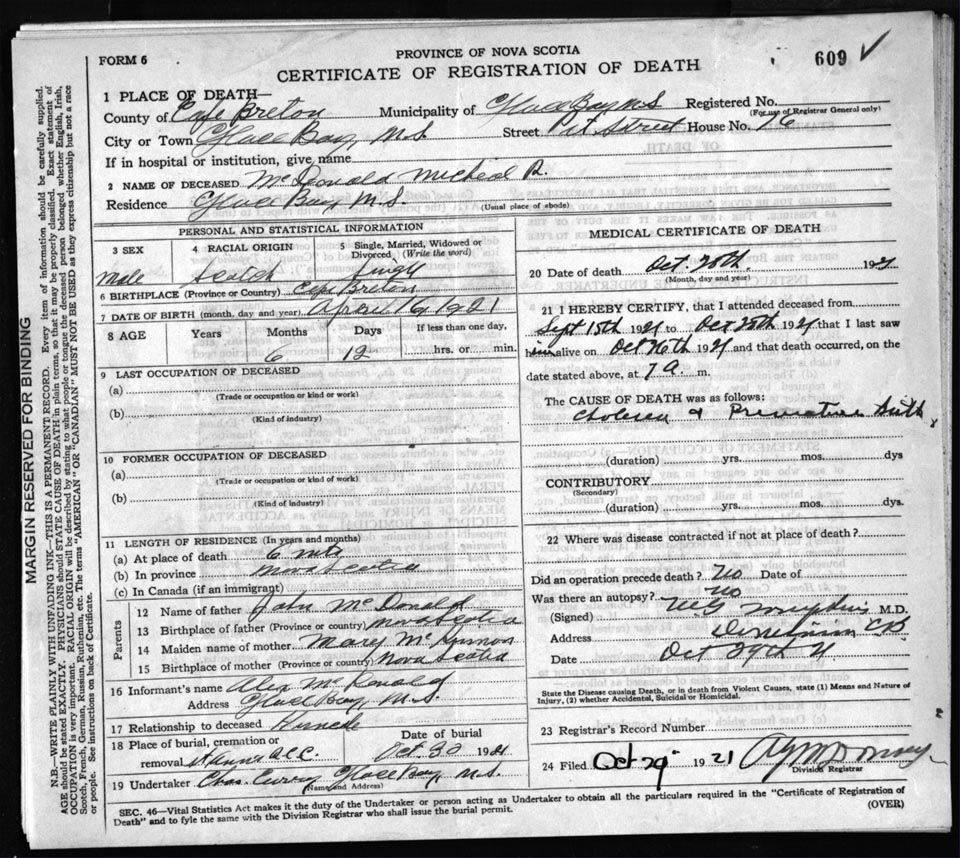 FORM 6
PROVINCE OF NOVA SCOTIA
609 ✓
CERTIFICATE OF REGISTRATION OF DEATH
1 PLACE OF DEATH—
County of Cape Breton Municipality of Glace Bay N.S Registered No.
(For use of Registrar General only)
City or Town Glace Bay, N.S. Street Pit Street House No. 16
If in hospital or institution, give name
2 NAME OF DECEASED McDonald Micheal R.
Residence Glace Bay, N.S. (Usual place of abode)
PERSONAL AND STATISTICAL INFORMATION
3 SEX 4 RACIAL ORIGIN 5 Single, Married, Widowed or Divorced (Write the word)
Male Scotch Single
6 BIRTHPLACE (Province or Country) Cape Breton
7 DATE OF BIRTH (month, day and year) April 16 1921
8 AGE Years Months Days If less than one day,
6 12 hrs. or min.
9 LAST OCCUPATION OF DECEASED
(a)
(Trade or occupation or kind or work)
(b)
(Kind of industry)
10 FORMER OCCUPATION OF DECEASED
(a)
(Trade or occupation or kind or work)
(b)
(Kind of industry)
11 LENGTH OF RESIDENCE (In years and months)
(a) At place of death 6 mts
(b) In province Nova Scotia
(c) In Canada (if an immigrant)
Parents
12 Name of father John McDonald
13 Birthplace of father (Province or country) Nova Scotia
14 Maiden name of mother Mary McKinnon
15 Birthplace of mother (Province or country) Nova Scotia
16 Informant's name Alex McDonald
Address Glace Bay, N.S.
17 Relationship to deceased
18 Place of burial, cremation or removal Date of burial
St Annes R.C.C. Oct 30 1921
19 Undertaker Chas. Curry Glace Bay N.S.
(Name and Address)
MEDICAL CERTIFICATE OF DEATH
20 Date of death Oct 28th, 1921
(Month, day and year)
21 I HEREBY CERTIFY, that I attended deceased from
Sept 15th 1921 to Oct 28th 1921 that I last saw
him alive on Oct 26th 1921 and that death occurred, on the
date stated above, at 7 a. m.
The CAUSE OF DEATH was as follows:
Cholera & Premature birth
(duration) yrs. mos. dys
CONTRIBUTORY
(Secondary)
(duration) yrs. mos. dys.
22 Where was disease contracted if not at place of death?
Did an operation precede death? No Date of
Was there an autopsy? No
(Signed) M.D.
Address C.B.
Date Oct 29th 21
State the Disease causing Death, or in death from Violent Causes, state (1) Means and Nature of
Injury, (2) whether Accidental, Suicidal or Homicidal.
23 Registrar's Record Number
24 Filed Oct 29 1921
Division Registrar
SEC. 46—Vital Statistics Act makes it the duty of the Undertaker or person acting as Undertaker to obtain all the particulars required in the "Certificate of Registration of
Death" and to fyle the same with the Division Registrar who shall issue the burial permit.
(OVER)
MARGIN RESERVED FOR BINDING
N.B.—WRITE PLAINLY WITH UNFADING INK—THIS IS A PERMANENT RECORD. Every item of information should be carefully supplied.
AGE should be stated EXACTLY. PHYSICIANS should STATE CAUSE OF DEATH in plain terms, so that it may be properly classified. Exact statement of
OCCUPATION is very important. RACIAL ORIGIN will be described by stating to what people or tongue the deceased person belonged whether English, Irish,
Scotch, French, German, Russian, Ruthenian, etc. The terms "AMERICAN" OR "CANADIAN" MUST NOT BE USED as they express citizenship but not a race
or people. See instructions on back of Certificate.